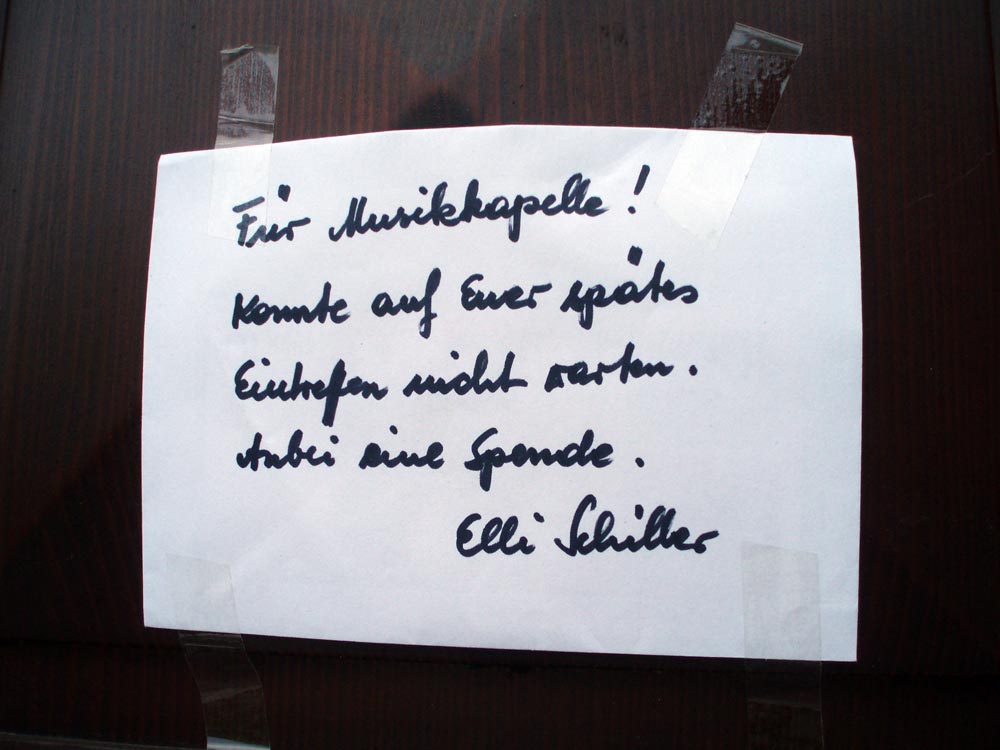 Für Musikkapelle!
Konnte auf Euer spätes
Eintreffen nicht warten.
Anbei eine Spende.
Elli Schiller